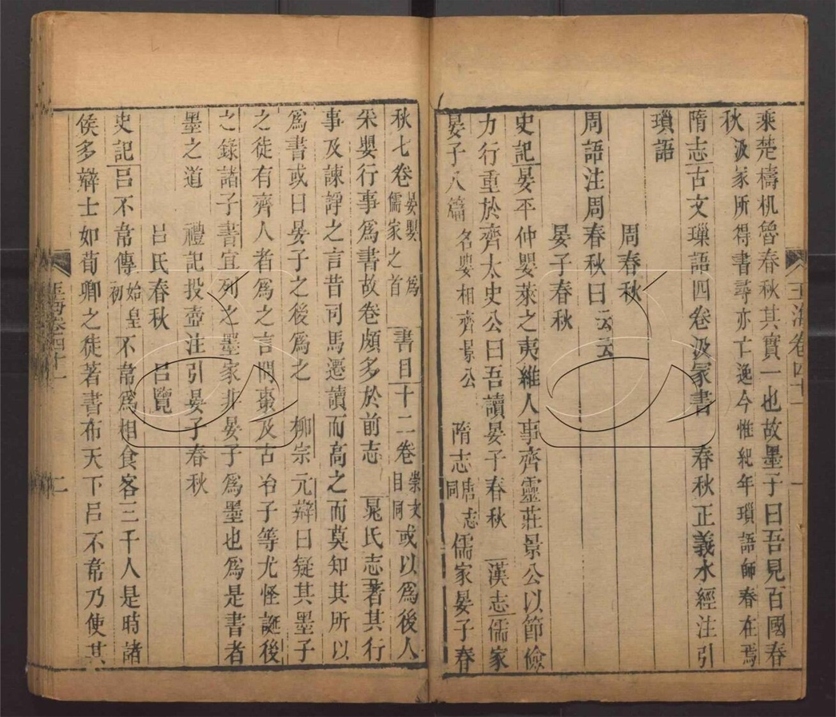 乘楚檮杌魯春秋其實一也故墨子曰吾見百國春
秋汲冢所得書尋亦亡逸今惟紀年瑣語師春在焉
隋志古文璅語四卷汲冢書　春秋正義水經注引
瑣語
周春秋
周語注周春秋曰云云
晏子春秋
史記晏平仲嬰萊之夷維人事齊靈莊景公以節儉
力行重於齊太史公曰吾讀晏子春秋　漢志儒家
晏子八篇名嬰相齊景公　隋志唐志同儒家晏子春
玉海卷四十一　一
秋七卷晏嬰為儒家之首　書目十二卷崇文目同或以爲後人
采嬰行事爲書故卷頗多於前志　晁氏志著其行
事及諫諍之言昔司馬遷讀而高之而莫知其所以
爲書或曰晏子之後爲之　柳宗元辯曰疑其墨子
之徒有齊人者爲之言問棗及古冶子等尤怪誕後
之錄諸子書宜列之墨家非晏子爲墨也爲是書者
墨之道　禮記投壺注引晏子春秋
呂氏春秋　呂覽
史記呂不韋傳始皇初不韋爲相食客三千人是時諸
侯多辯士如荀卿之徒著書布天下呂不韋乃使其
玉海卷四十一　二